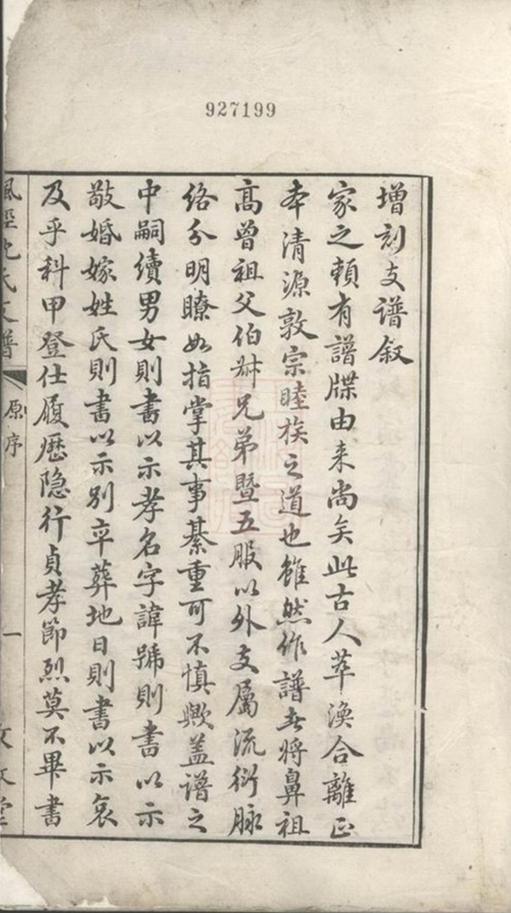 927199
增刻支譜叙
家之頼有譜牒由来尚矣此古人萃渙合離正
本清源敦宗睦族之道也雖然作譜者将鼻祖
高曾祖父伯叔兄弟暨五服以外支属流衍脉
络分明瞭如指掌其事綦重可不慎歟盖譜之
中嗣續男女則書以示孝名字諱號則書以示
敬婚嫁姓氏則書以示别卒葬地日則書以示哀
及乎科甲登仕履歷隐行貞孝節烈莫不畢書
氏支譜
原序
一